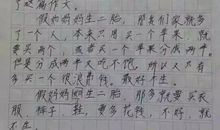 了这篇作文。
假如妈妈生二胎，那我们家就多
了一个人，本来只用买一个苹果，就
要买两个，或者买一个苹果分成两半。
但是分成两半又吃不饱，所以又只有
多买一个很浪费钱。最好不生。
假如妈妈生二胎，那多就要买衣
服，裤子，鞋，要多花钱，不好，就
不生。